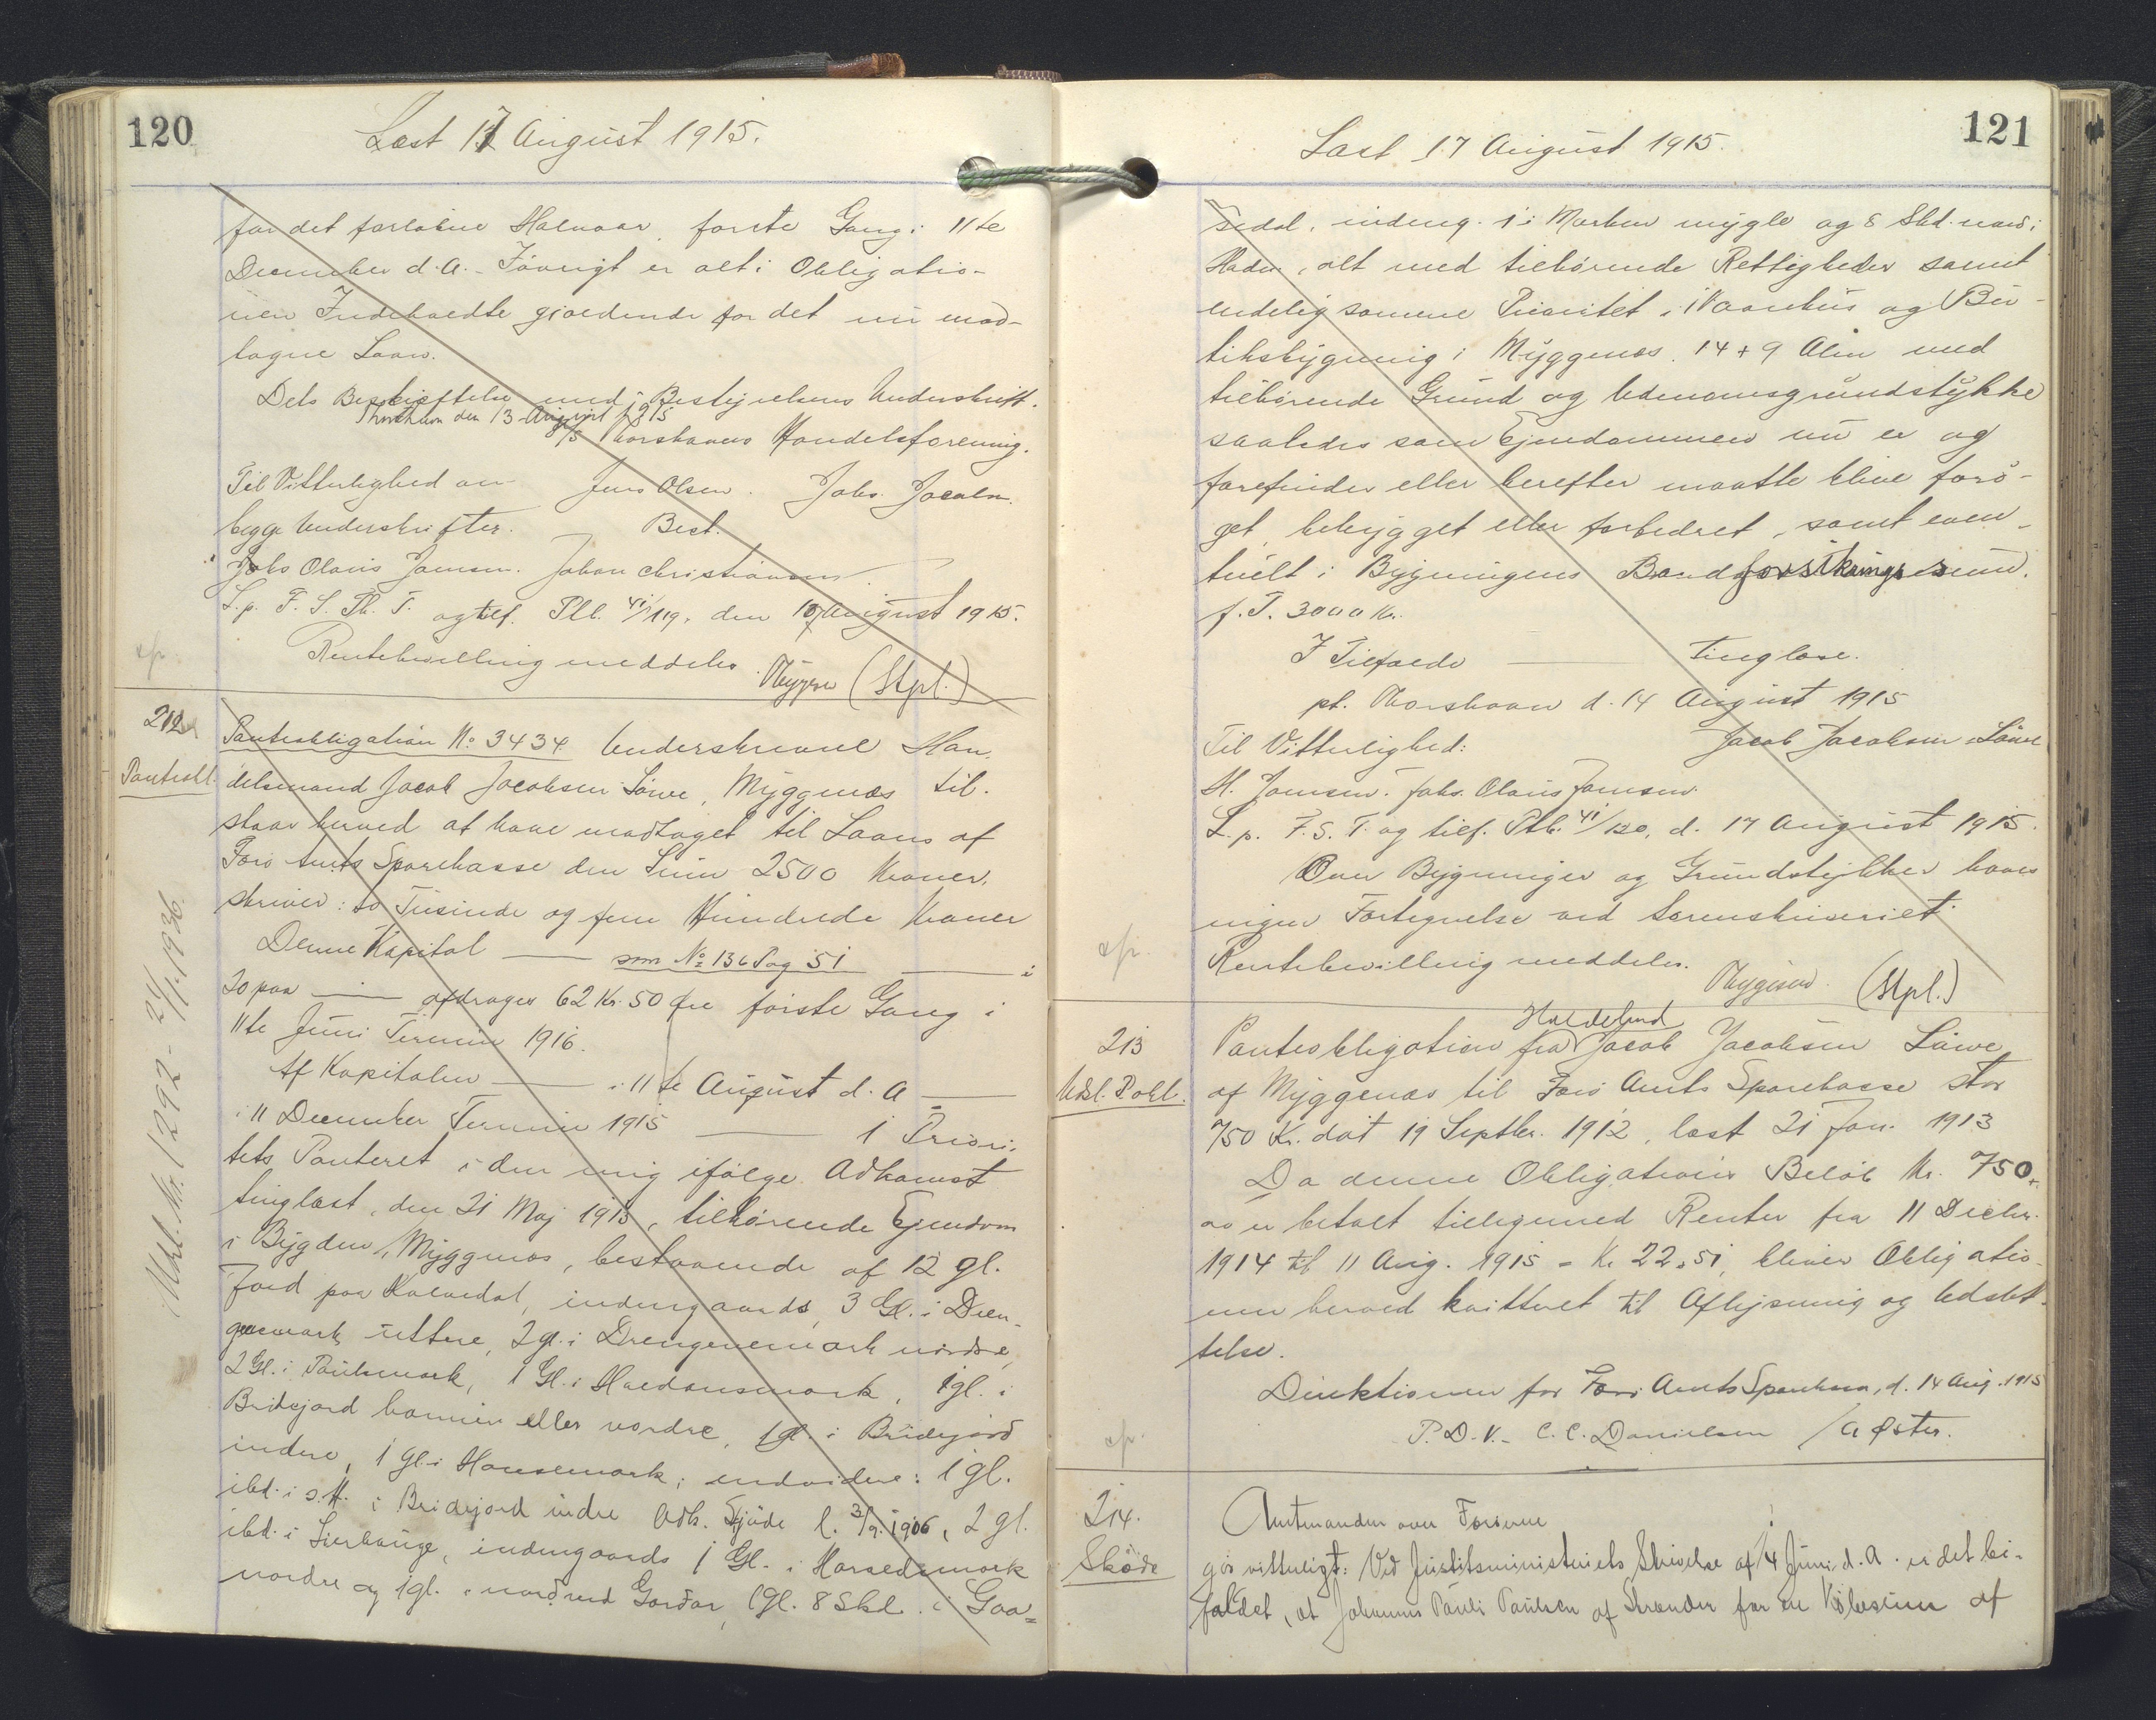 120
Læst 17 August 1915.
for det forløbne Halvaar, første Gang i 11te
December d. A. - Iøvrigt er alt i Obligatio-
nen Indeholdte gjældende for det nu mod-
tagne Laan.
Dets Bekræftelse med Bestyrelsens Underskrift.
Thorshavn den 13 August 1915
A/S Thorshavns Handelsforening.
Til Vitterlighed om Jens Olsen. Johs. Jacobsen.
begge Underskrifter. Best.
Johs Olavis Joensen. Johan Christiansen.
L. p. F. S. Th. T. og tilf. Ptb. 41/119, den 17 August 1915.
Rentebevilling meddeles. (Stpl.)
212
Panteobl.
Panteobligation No 3434. Underskrevne Han-
delsmand Jacob Jacobsen Løwe, Myggenæs til-
staar herved at have modtaget til Laans af
Færø Amts Sparekasse den Sum 2500 Kroner,
skriver: to Tusinde og fem Hundrede Kroner
Denne Kapital — som No 136 Pag 51 — i
20 paa — afdrages 62 Kr. 50 Øre første Gang i
11te Juni Termin 1916.
Af Kapitalen — i 11te August d. A —
i 11 December Termin 1915 — 1 Priori-
tets Panteret i den mig ifølge Adkomst
tinglæst, den 21 Maj 1913, tilhørende Ejendom
i Bygden Myggenæs, bestaaende af 12 gl.
Jord paa Kalvedal, indengaards, 3 Gl. i Dren-
gemark yttere, 2 gl. i Drengenemark nordre,
2 Gl. i Poulsmark, 1 Gl. i Haldansmark, 1 gl. i
Bridejord hannen eller nordre, 1 gl. i Bridejord
indre, 1 gl. i Hansemark; endvidere: 1 gl.
ibd. i s. M. i Bridejord indre Adk. Skjøde l. 3/9. 1906, 2 gl.
ibd. i Lierhauge, indengaards 1 Gl. i Harsedsmark
nordre og 1 gl. i nord ved Gardar, 1 gl. 8 Skd. i Gaa-
Mkl. Nr. 1292 - 24/11. 1936.
121
Læst 17 August 1915.
sedal, indeng. 1 i Marken mygle og 8 Skd. nord i
Haden, alt med tilhørende Rettigheder samt
endelig samme Prioritet i Vaanhus og Bu-
tiksbygning i Myggenæs. 14 + 9 Alen med
tilhørende Grund og Udenomsgrundstykke
saaledes som Ejendommen nu er og
forefindes eller herefter maatte blive forø-
get, bebygget eller forbedret, samt even-
tuelt i Bygningens Brandforsikringssum.
f. T. 3000 Kr.
I Tilfælde — tinglæse.
pt. Thorshavn d. 14 August 1915
Til Vitterlighed: Jacob Jacobsen Løwe
M. Joensen. Johs. Olavis Joensen.
L. p. F. S. T. og tilf. Ptb. 41/120, d. 17 August 1915.
Over Bygninger og Grundstykker haves
ingen Fortegnelse ved Sorenskriveriet
Rentebevilling meddeles. (Stpl.)
213
Udsl. Pobl.
Panteobligation fra Handelsmd Jacob Jacobsen Løwe
af Myggenæs til Færø Amts Sparekasse stor
750 Kr. dat 19 Septbr. 1912, læst 21 Jan. 1913
Da denne Obligations Beløb Kr. 750,
00 er betalt tilligemed Renter fra 11 Decbr.
1914 til 11 Aug. 1915 = Kr. 22,51, bliver Obligatio-
nen herved kvitteret til Aflysning og Udslet-
telse.
Direktionen for Færø Amts Sparekasse, d. 14 Aug. 1915
P. D. V. - C. C. Danielsen / A Øster.
214.
Skøde
Amtmanden over Færøerne
gør vitterligt: Ved Justitsministeriets Skrivelse af 14 Juni d. A. er det bi-
faldet, at Johannes Pauli Paulsen af Strænder for en Købesum af